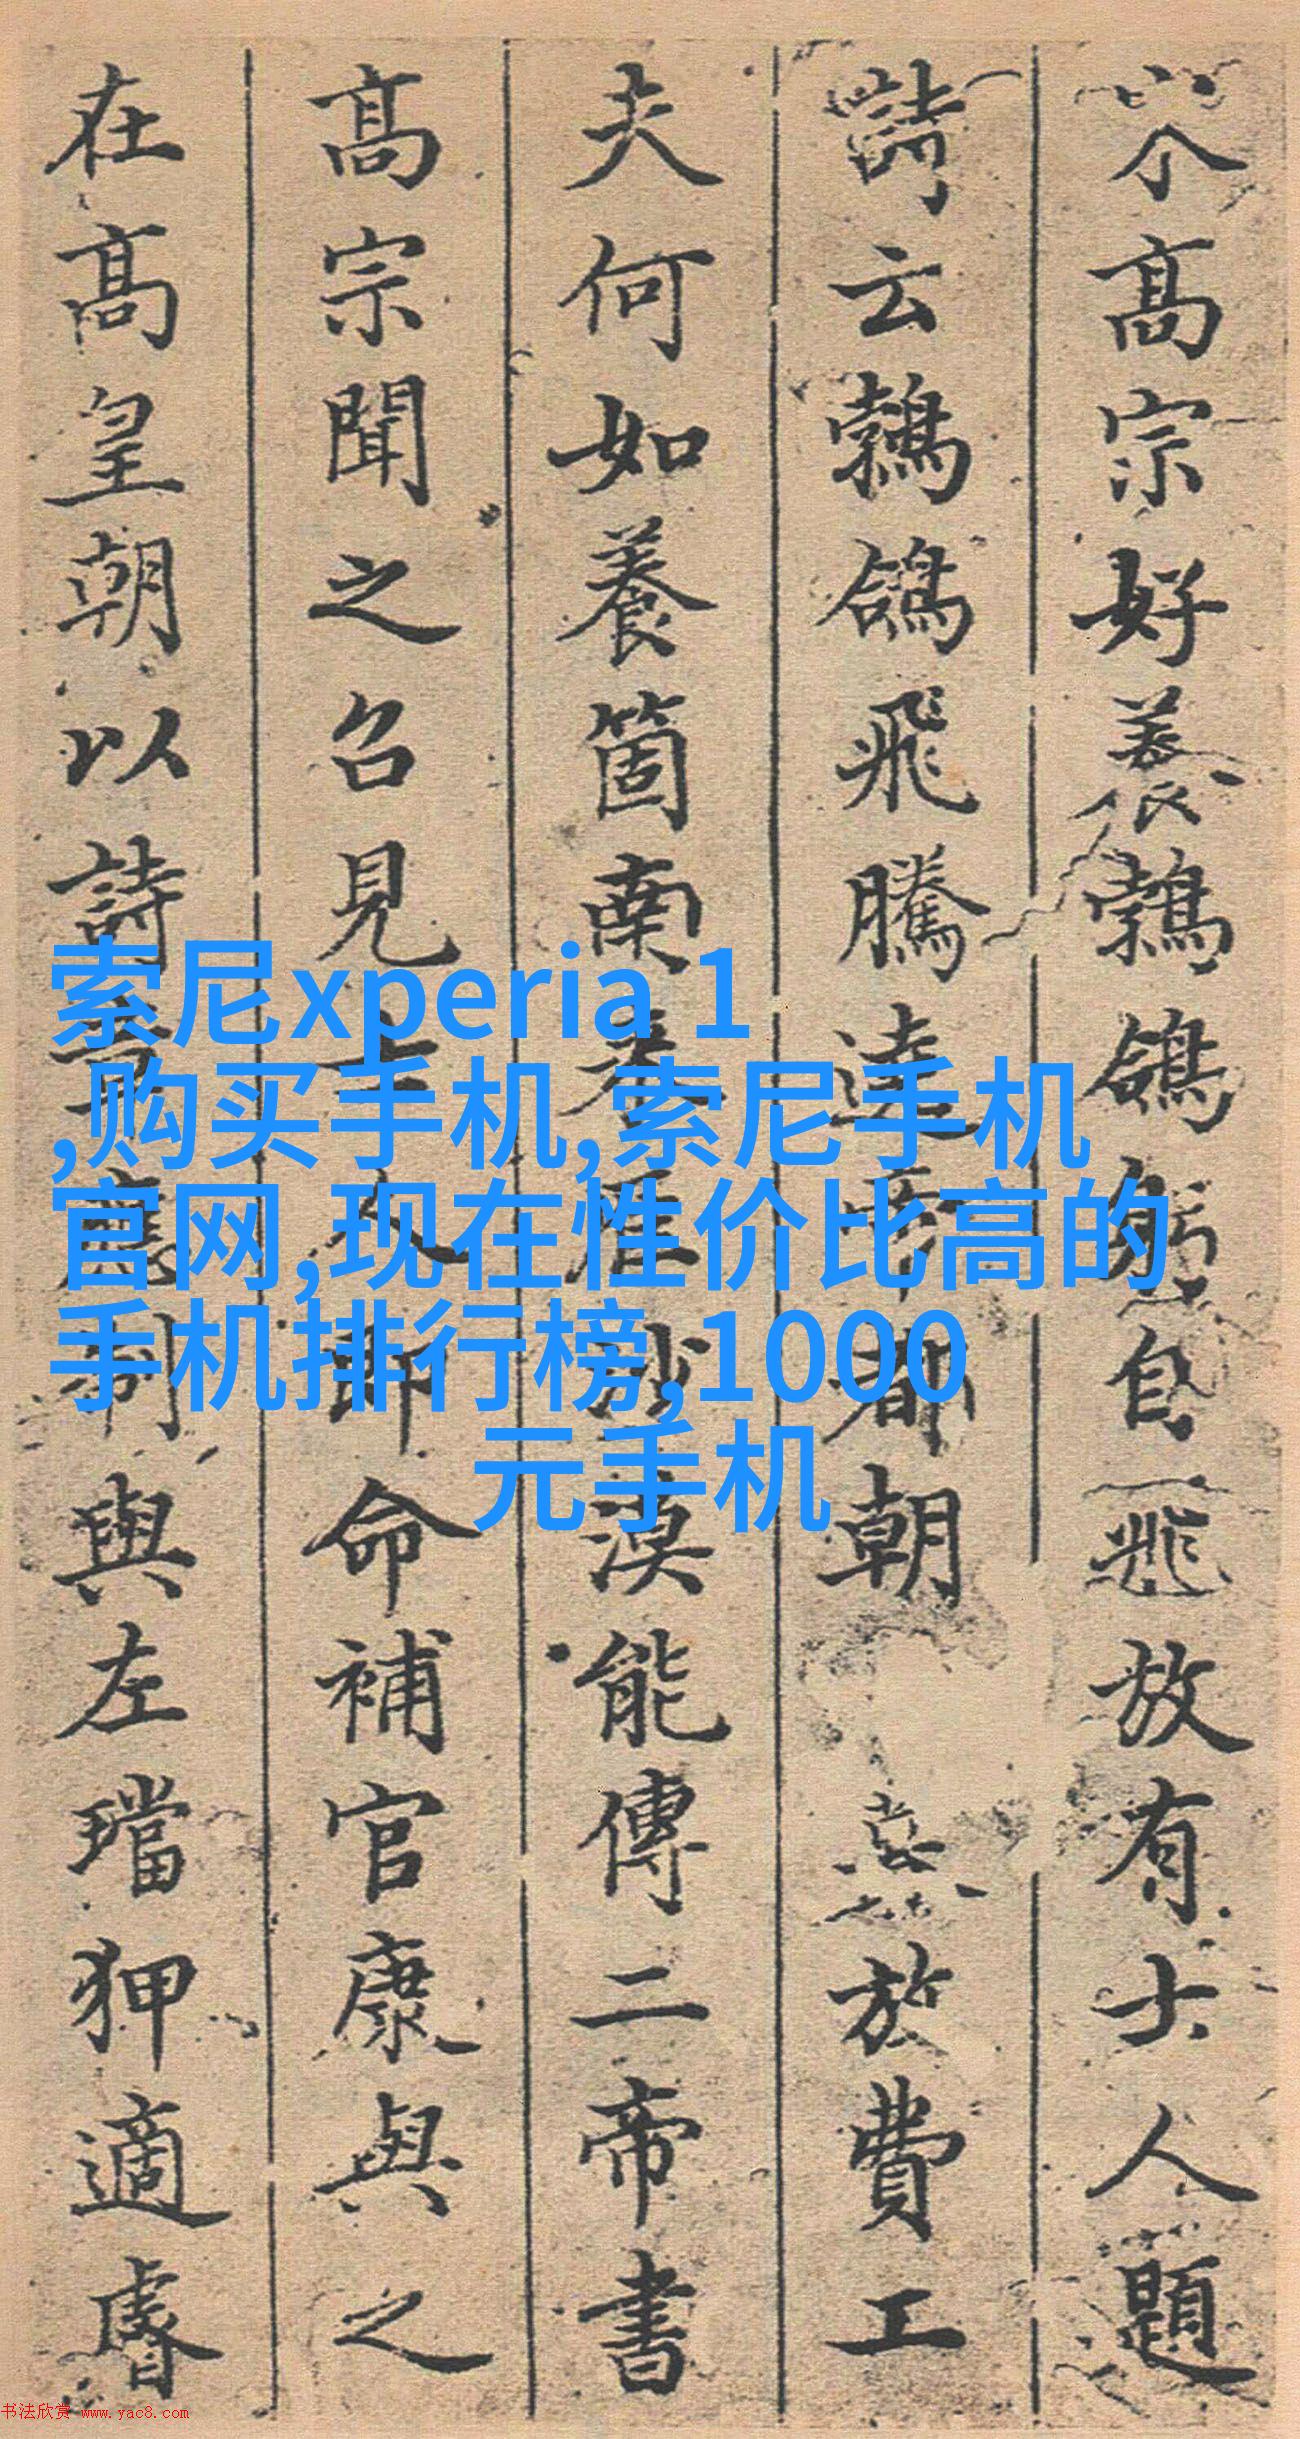 高宗好養鵓鴿躬自飛放有士人題
詩云鵓鴿飛騰遶帝都朝放費工
夫何如養箇南來雁沙漠能傳二帝書
高宗聞之召見士人即命補官康與之
在高皇朝以詩章應制與左璫狎適睿
索尼xperia 1
,购买手机,索尼手机
官网,现在性价比高的
手机排行榜,1000
元手机
书法欣赏 www.yac8.com